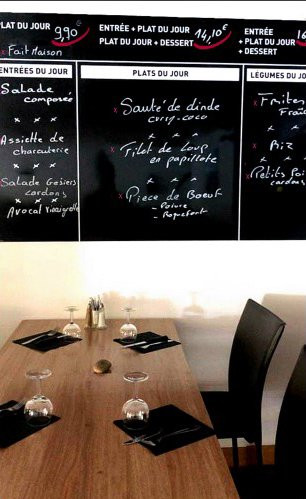 LAT DU JOUR 9,90€
x Fait Maison
ENTRÉE + PLAT DU JOUR 14,10€
PLAT DU JOUR + DESSERT
ENTRÉE 16
+ PLAT DU JOUR
+ DESSERT
ENTRÉES DU JOUR
Salade
composée
x x x
Assiette de
charcuterie
x x x
Salade Gésiers
lardons
x x x
Avocat Vinaigrette
PLATS DU JOUR
x Sauté de dinde
curry-coco
x x x
x Filet de Loup
en papillote
x x x
x Piece de Boeuf
- Poivre
- Roquefort
LÉGUMES DU J
x Frites
Fraîc
x x
x Riz
x x
x Petits Poi
lardons